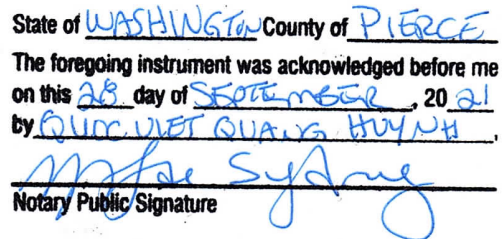 State of WASHINGTON County of PIERCE
The foregoing instrument was acknowledged before me
on this 28 day of SEPTEMBER, 20 21
by QUOC VIET QUANG HUYNH,
Notary Public Signature